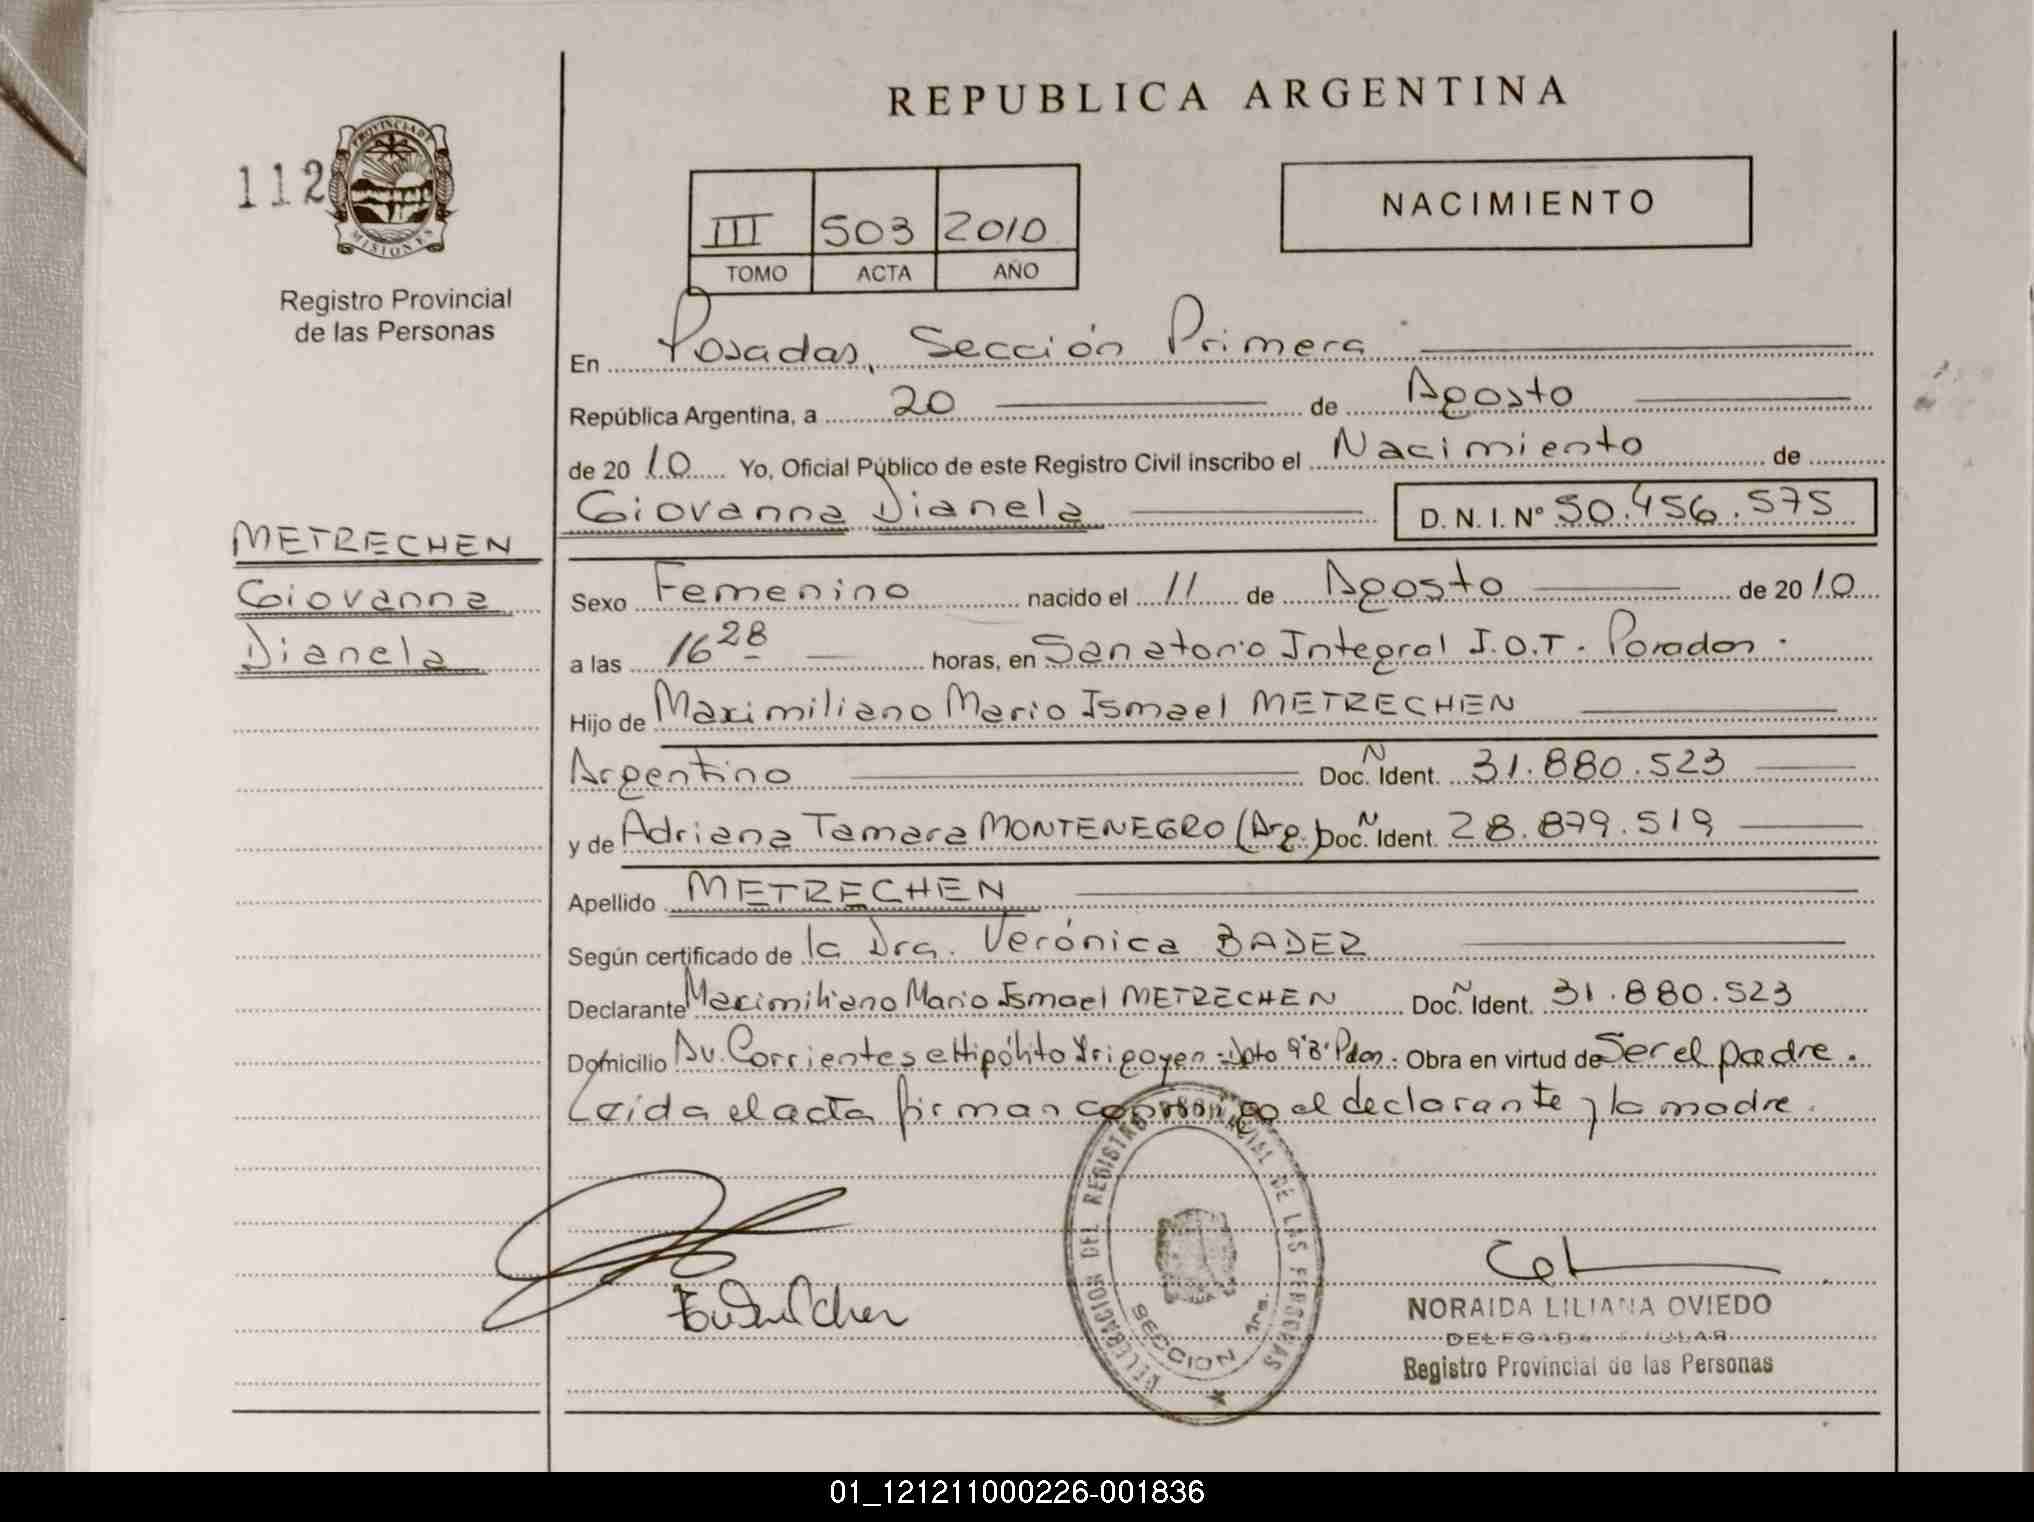 REPUBLICA ARGENTINA
112
PROVINCIA DE
MISIONES
Registro Provincial
de las Personas
III 503 2010
TOMO ACTA AÑO
NACIMIENTO
En Posadas, Sección Primera
República Argentina, a 20 de Agosto
de 2010 Yo, Oficial Público de este Registro Civil inscribo el Nacimiento de
Giovanna Dianela D. N. I. Nº 50.456.575
METRECHEN
Giovanna
Dianela
Sexo Femenino nacido el 11 de Agosto de 2010
a las 16 28 horas, en Sanatorio Integral I.O.T. Posadas.
Hijo de Maximiliano Mario Ismael METRECHEN
Argentino Doc. Ñ Ident. 31.880.523
y de Adriana Tamara MONTENEGRO (Arg.) Doc. Ñ Ident. 28.879.519
Apellido METRECHEN
Según certificado de la Dra. Verónica BADER
Declarante Maximiliano Mario Ismael METRECHEN Doc. Ñ Ident. 31.880.523
Domicilio Av. Corrientes e Hipólito Yrigoyen - Dpto 9 "B" Pdas. Obra en virtud de Ser el padre.
Leida el acta firman conmigo el declarante y la madre.
DELEGACION DEL REGISTRO PROVINCIAL DE LAS PERSONAS
SECCION 1ra.
NORAIDA LILIANA OVIEDO
DELEGADA TITULAR
Registro Provincial de las Personas
01_121211000226-001836